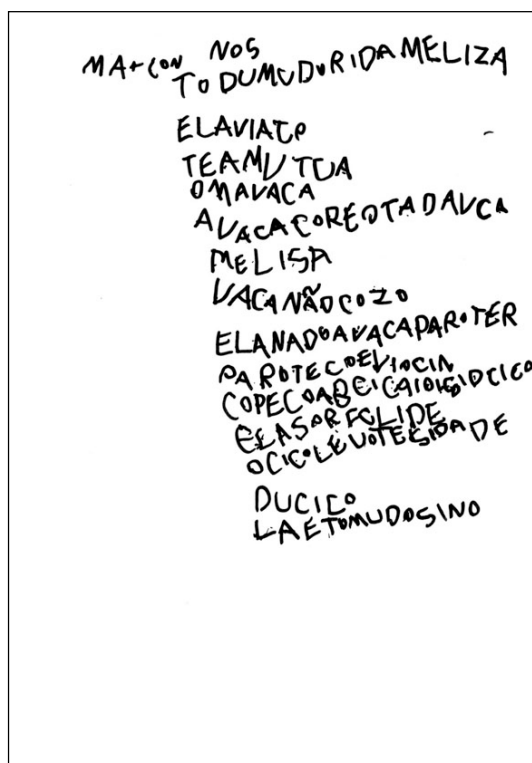 MA+CON NOS
TODUMUDORIDAMELIZA
ELAVIATO
TEAMUTUA
OMAVACA
AVACACOREOTADAUCA
MELISA
VACANÃOCOZO
ELANADOAVACAPAROTER
PAROTECOEVIOCIA
ELASORFGLIDE
OCICOLEVOTEGIDADE
DUCICO
LAETOMUDOSINO